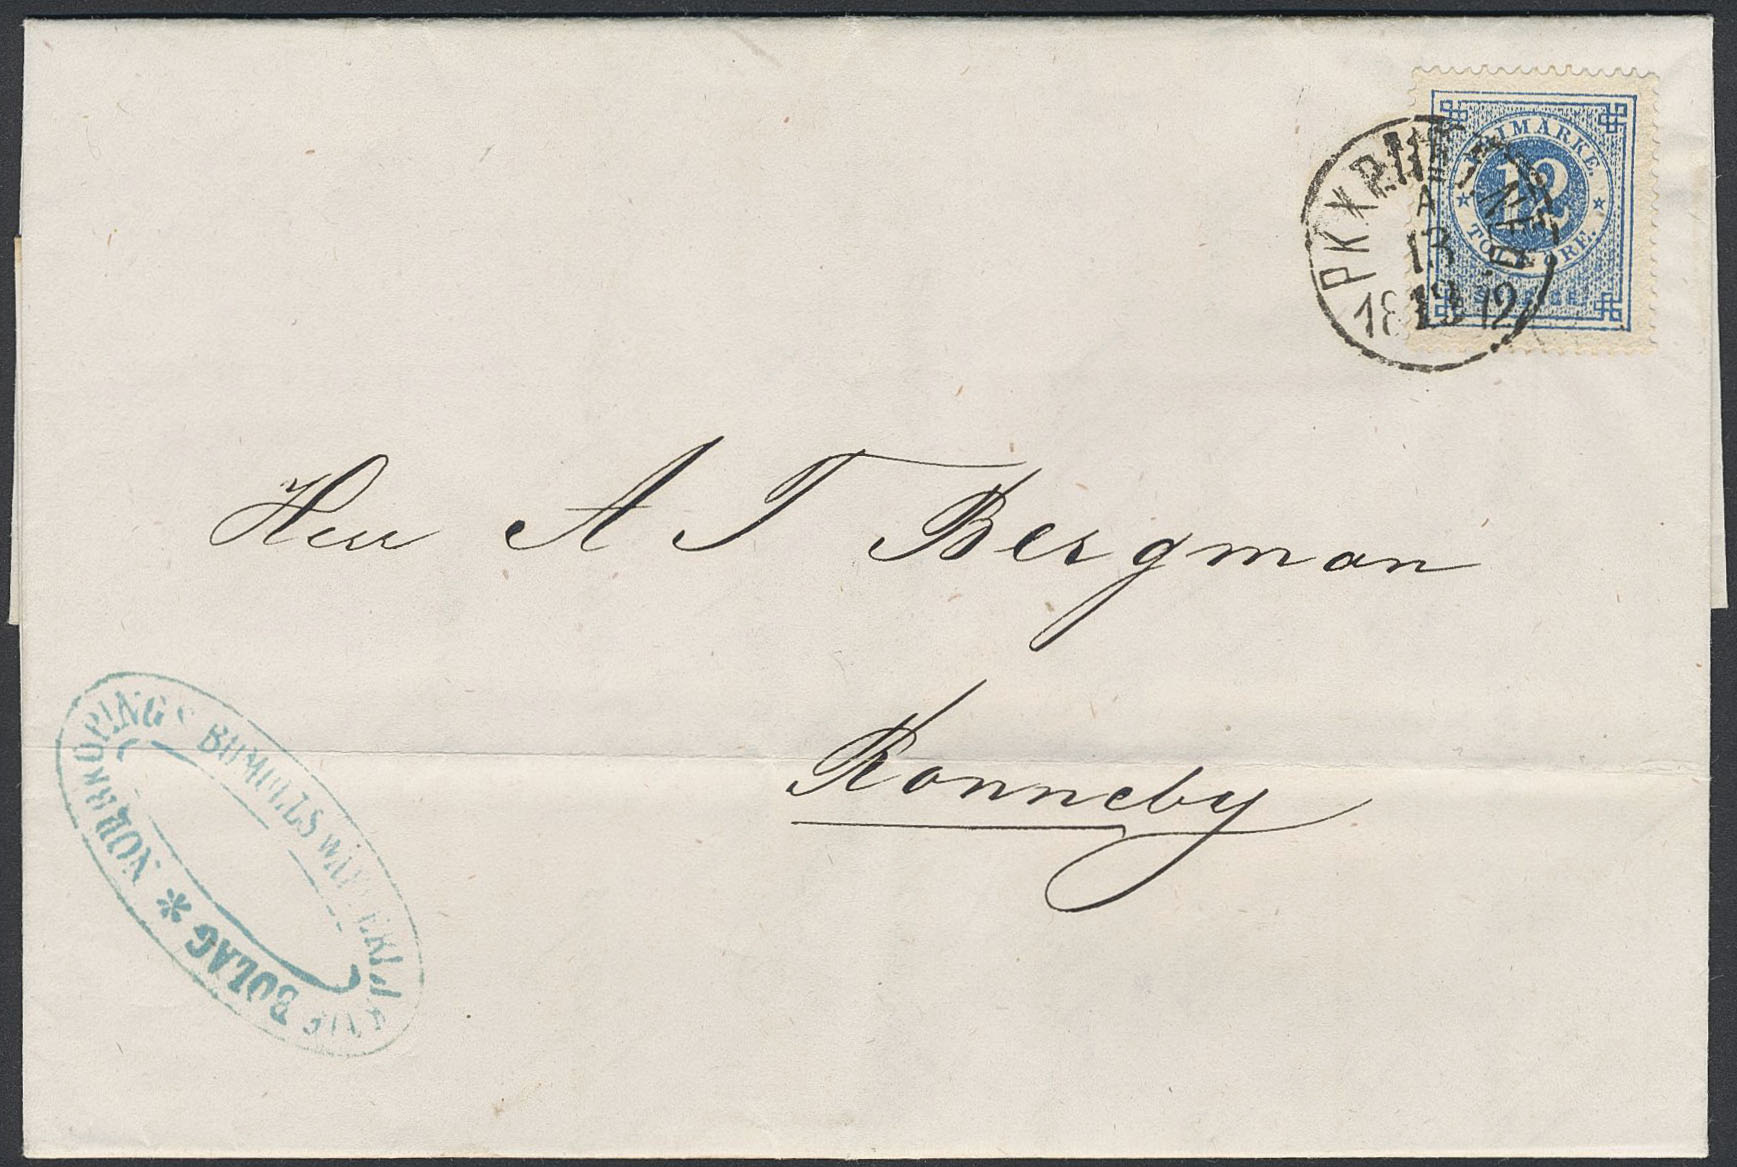 FRIMÄRKE.
12
TOLF ÖRE.
SVERIGE
PKXP
A
13
12
Herr A T Bergman
Ronneby
NORRKÖPINGS BOMULLS WÄFVERI
BOLAG *